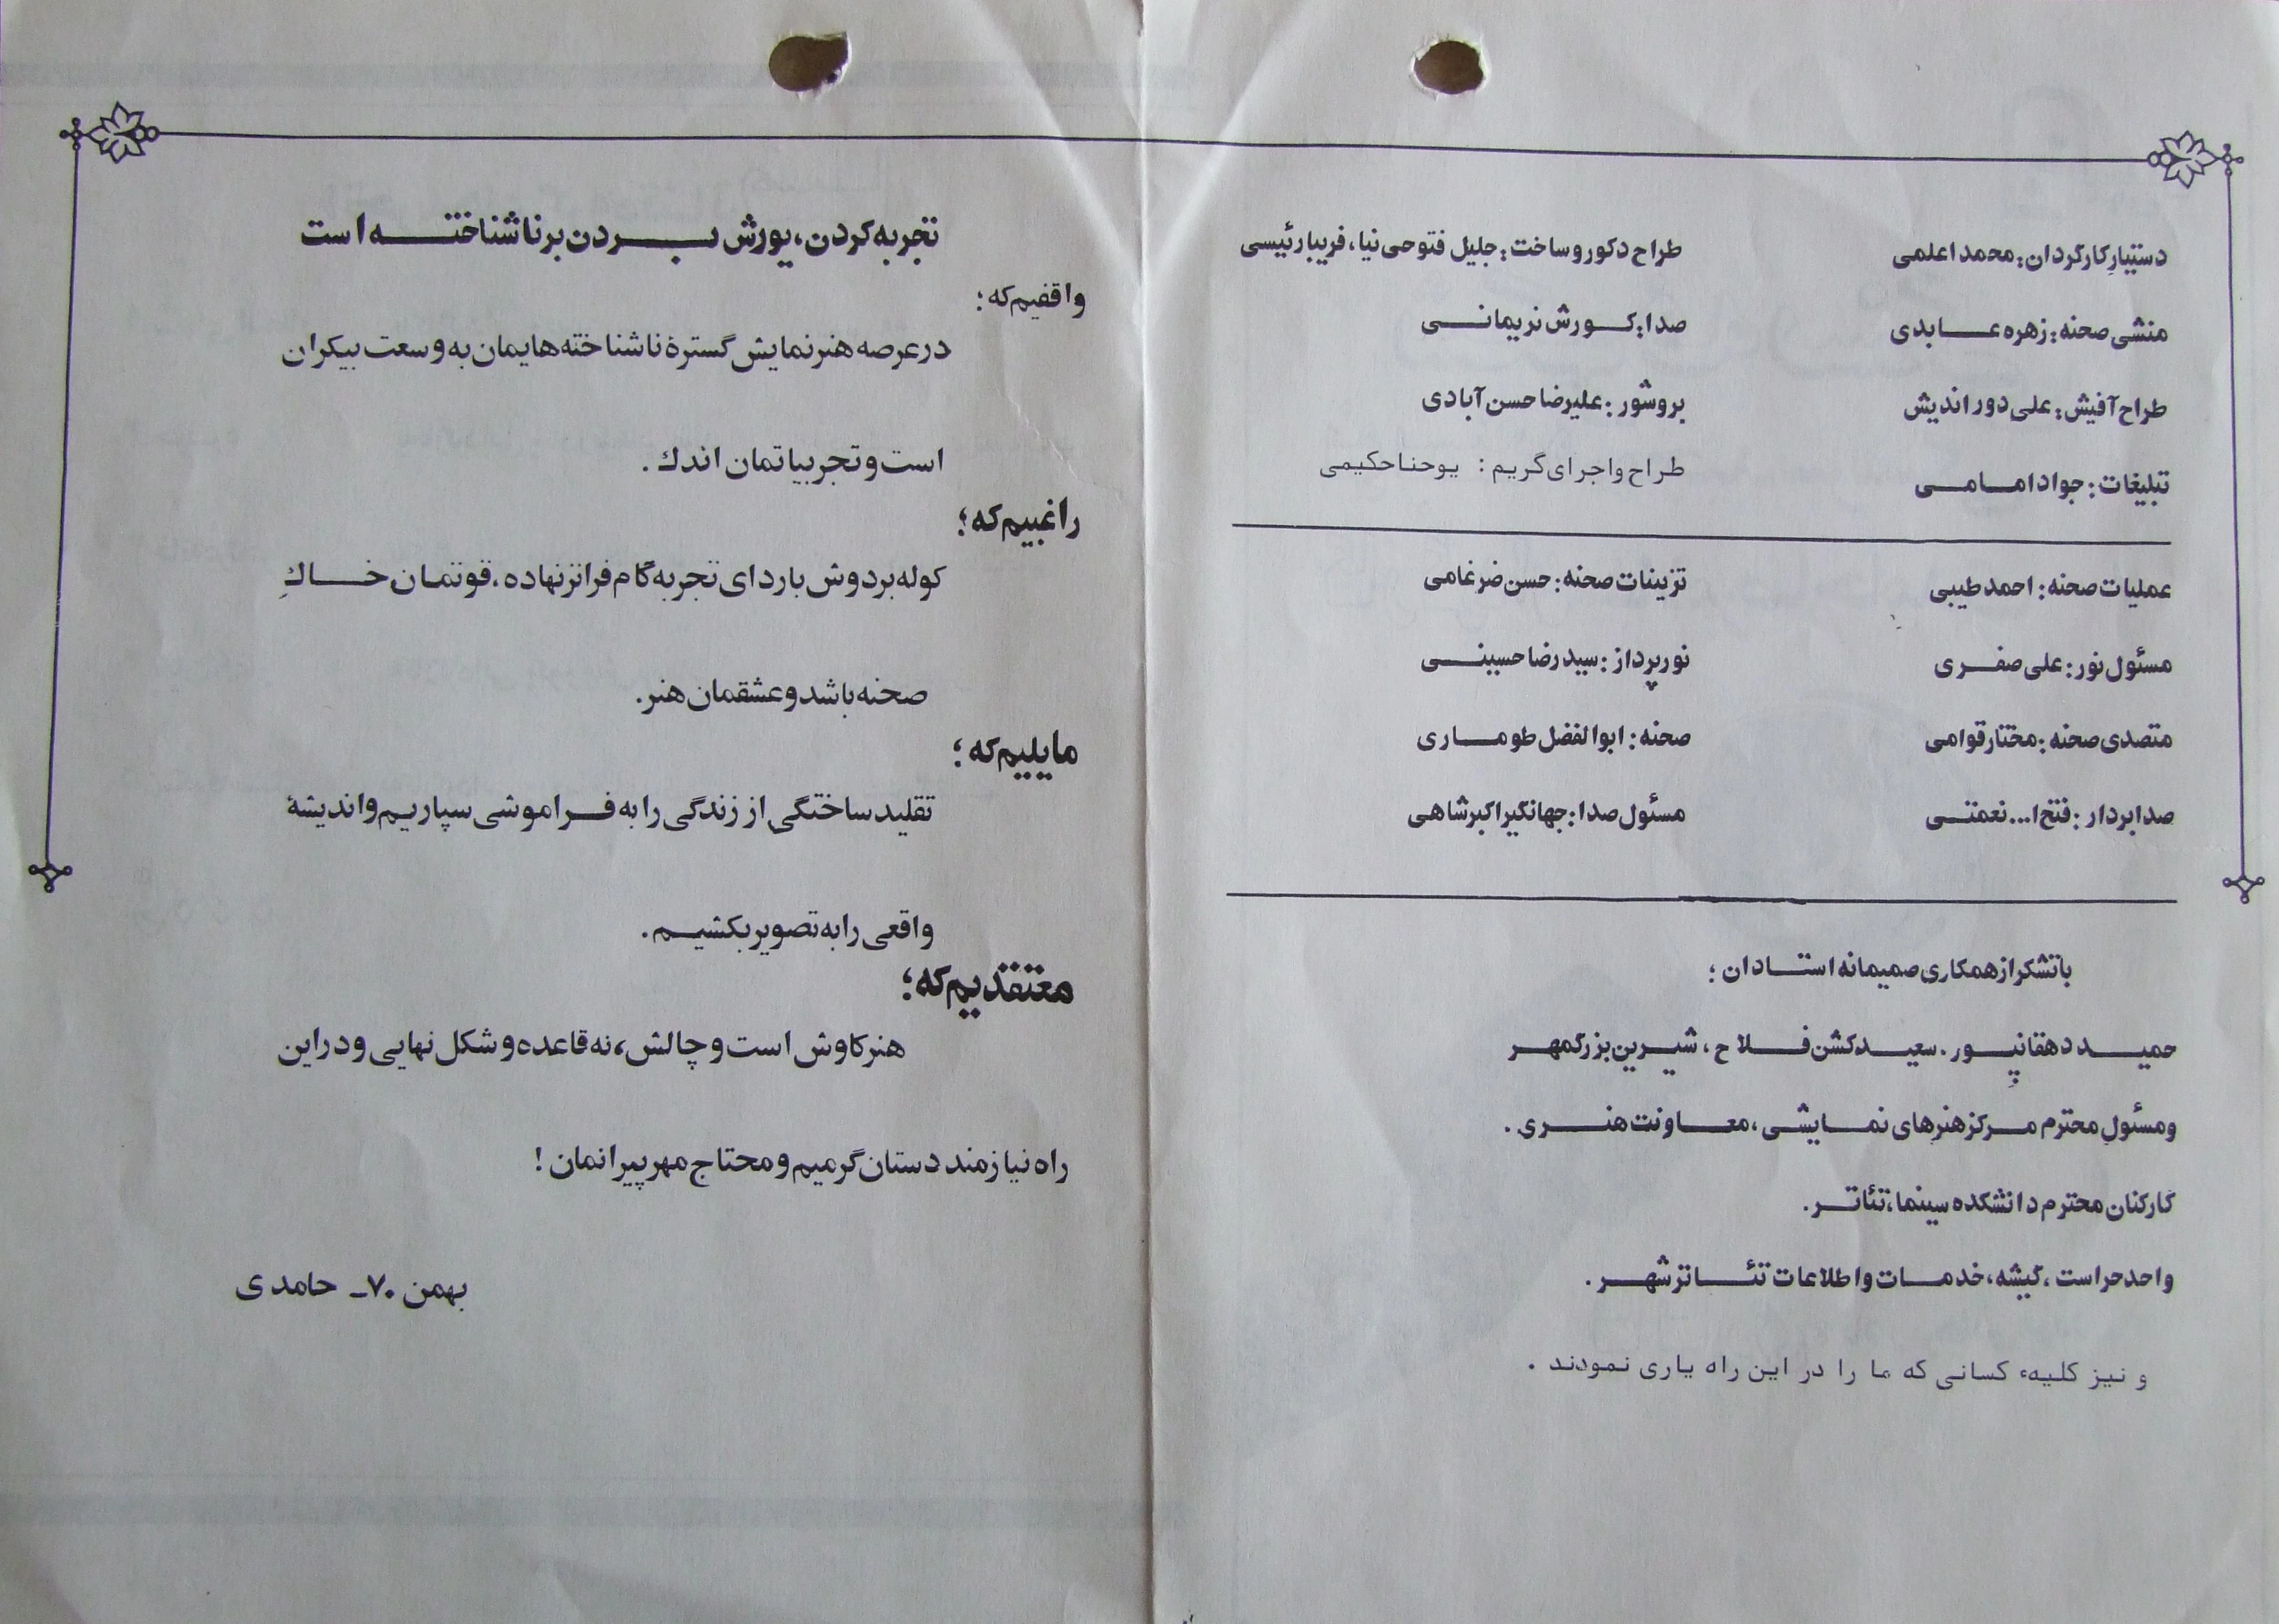 دستیار کارگردان: محمد اعلمی
طراح دکور و ساخت: جلیل فتوحی نیا، فریبا رئیسی
منشی صحنه: زهره عابدی
صدا: کورش نریمانی
طراح آفیش: علی دوراندیش
بروشور: علیرضا حسن آبادی
تبلیغات: جواد امامی
طراح و اجرای گریم: یوحنا حکیمی
عملیات صحنه: احمد طیبی
تزیینات صحنه: حسن ضرغامی
مسئول نور: علی صفری
نورپرداز: سید رضا حسینی
متصدی صحنه: مختار قوامی
صحنه: ابوالفضل طوماری
صدابردار: فتح ا... نعمتی
مسئول صدا: جهانگیر اکبرشاهی
با تشکر از همکاری صمیمانه استادان:
حمید دهقانپور. سعید کشن فلاح، شیرین بزرگمهر
و مسئول محترم مرکز هنرهای نمایشی، معاونت هنری.
کارکنان محترم دانشکده سینما، تئاتر.
واحد حراست، گیشه، خدمات و اطلاعات تئاتر شهر.
و نیز کلیهء کسانی که ما را در این راه یاری نمودند.
تجربه کردن، یورش بردن بر ناشناخته است
واقفیم که:
در عرصه هنر نمایش گسترهٔ ناشناخته هایمان به وسعت بیکران
است و تجربیاتمان اندك.
راغبیم که؛
کوله بر دوش با ردای تجربه گام فراتر نهاده، قوتمان خاكِ
صحنه باشد و عشقمان هنر.
مایلیم که؛
تقلید ساختگی از زندگی را به فراموشی سپاریم و اندیشهٔ
واقعی را به تصویر بکشیم.
معتقدیم که؛
هنر کاوش است و چالش، نه قاعده و شکل نهایی و در این
راه نیازمند دستان گرمیم و محتاج مهر پیرانمان!
بهمن ۷۰- حامدی